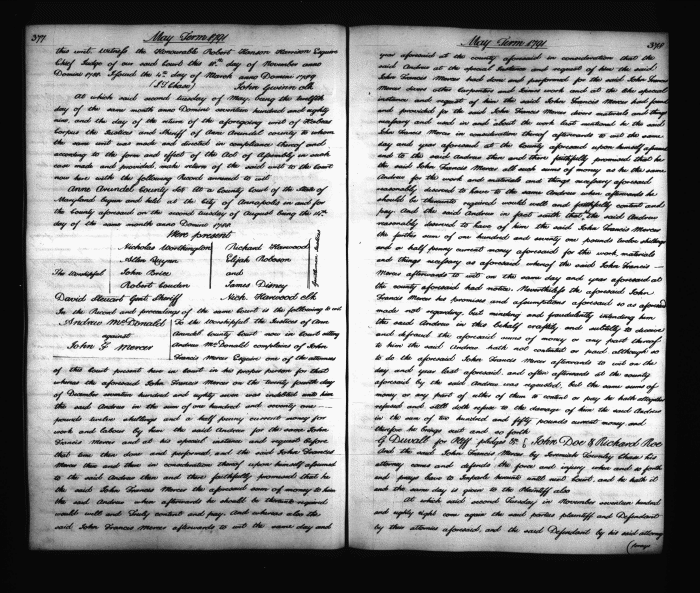 377
May Term 1791
this writ. Witness the Honourable Robert Hanson Harrison Esquire
Chief Judge of our said Court this 10th. day of November anno
Domini 1788. Issued the 4th day of March anno Domini 1789
(S.T. Chase) John Gwinn clk
At which said second tuesday of May, being the twelfth
day of the same month anno Domini seventeen hundred and eighty
nine, and the day of the return of the aforegoing writ of Habeas
Corpus the Justices and Sheriff of Ann Arundel County to whom
the same writ was made and directed in compliance thereof and
according to the form and effect of the Act of Assembly in such
case made and provided, make return of the said writ to the Court
now here with the following Record annexed to wit
Anne Arundel County Sct. At a County Court of the State of
Maryland begun and held at the City of Annapolis in and for
the County aforesaid on the second tuesday of August being the 12th
day of the same month anno Domini 1788.
Were present
Nicholas Worthington
Allen Quynn
The Worshipful John Brice
Robert Couden
Richard Harwood
Elijah Robeson
and
James Disney
Gentlemen Justices
David Steuart Gent. Sheriff Nich. Harwood clk
In the Record and proceedings of the same Court is the following to wit
Andrew McDonald
against
John F Mercer
To the Worshipful the Justices of Ann
Arundel County Court now in Court sitting
Andrew McDonald complains of John
Francis Mercer Esquire one of the attornies
of this Court present here in Court in his proper person for that
whereas the aforesaid John Francis Mercer on the twenty fourth day
of December seventeen hundred and eighty seven was indebted unto him
the said Andrew in the sum of one hundred and seventy one
pounds twelve shillings and a half penny current money for
work and labour by him the said Andrew for the same John
Francis Mercer and at his special instance and request before
that time then done and performed, and the said John Francis
Mercer then and there in consideration thereof upon himself assumed
to the said Andrew then and there faithfully promised that he
the said John Francis Mercer the aforesaid sum of money to him
the said Andrew when afterwards he should be thereunto required
would well and truly content and pay. And whereas also the
said John Francis Mercer afterwards to wit the same day and
May Term 1791
378
year aforesaid at the County aforesaid in consideration that the
said Andrew at the special instance and request of him the said
John Francis Mercer had done and performed for the said John Francis
Mercer divers other carpenters and Joiners work and at the like special
instance and request of him the said John Francis Mercer had found
and provided for the said John Francis Mercer divers materials and things
necessary and used in and about the work last mentioned he the said
John Francis Mercer in consideration thereof afterwards to wit the same
day and year aforesaid at the County aforesaid upon himself assumed
and to the said Andrew then and there faithfully promised that he
the said John Francis Mercer all such sums of money as he the same
Andrew for the work and materials and things necessary aforesaid
reasonably deserved to have to the same Andrew when afterwards he
should be thereunto required would well and faithfully content and
pay. And the said Andrew in fact saith that, the said Andrew
reasonably deserved to have of him the said John Francis Mercer
the further sum of one hundred and seventy one pounds twelve shillings
and a half penny current money aforesaid for the work materials
and things necessary as aforesaid, whereof the said John Francis
Mercer afterwards to wit on the same day and year aforesaid at
the County aforesaid had notice. Nevertheless the aforesaid John
Francis Mercer his promises and assumptions aforesaid so as aforesaid
made not regarding, but minding and fraudulently intending him
the said Andrew in this behalf craftily and subtilly to deceive
and defraud the aforesaid sums of money or any part thereof
to him the said Andrew hath not contented or paid although so
to do the aforesaid John Francis Mercer afterwards to wit on the
day and year last aforesaid, and often afterwards at the County
aforesaid by the said Andrew was requested; but the same sums of
money or any part of either of them to content or pay he hath altogether
refused and still doth refuse to the damage of him the said Andrew
in the sum of two hundred and fifty pounds current money and
therefore he brings suit and so forth
G Duvall for Plff pledges &c. { John Doe & Richard Roe
And the said John Francis Mercer by Jeremiah Townley Chase his
attorney comes and defends the force and injury when and so forth
and prays leave to Imparle hereunto until next Court, and he hath it
and the same day is given to the Plaintiff also
At which said second Tuesday in November seventeen hundred
and eighty eight come again the said parties plaintiff and Defendant
by their attornies aforesaid, and the said Defendant by his said attorney
(prays